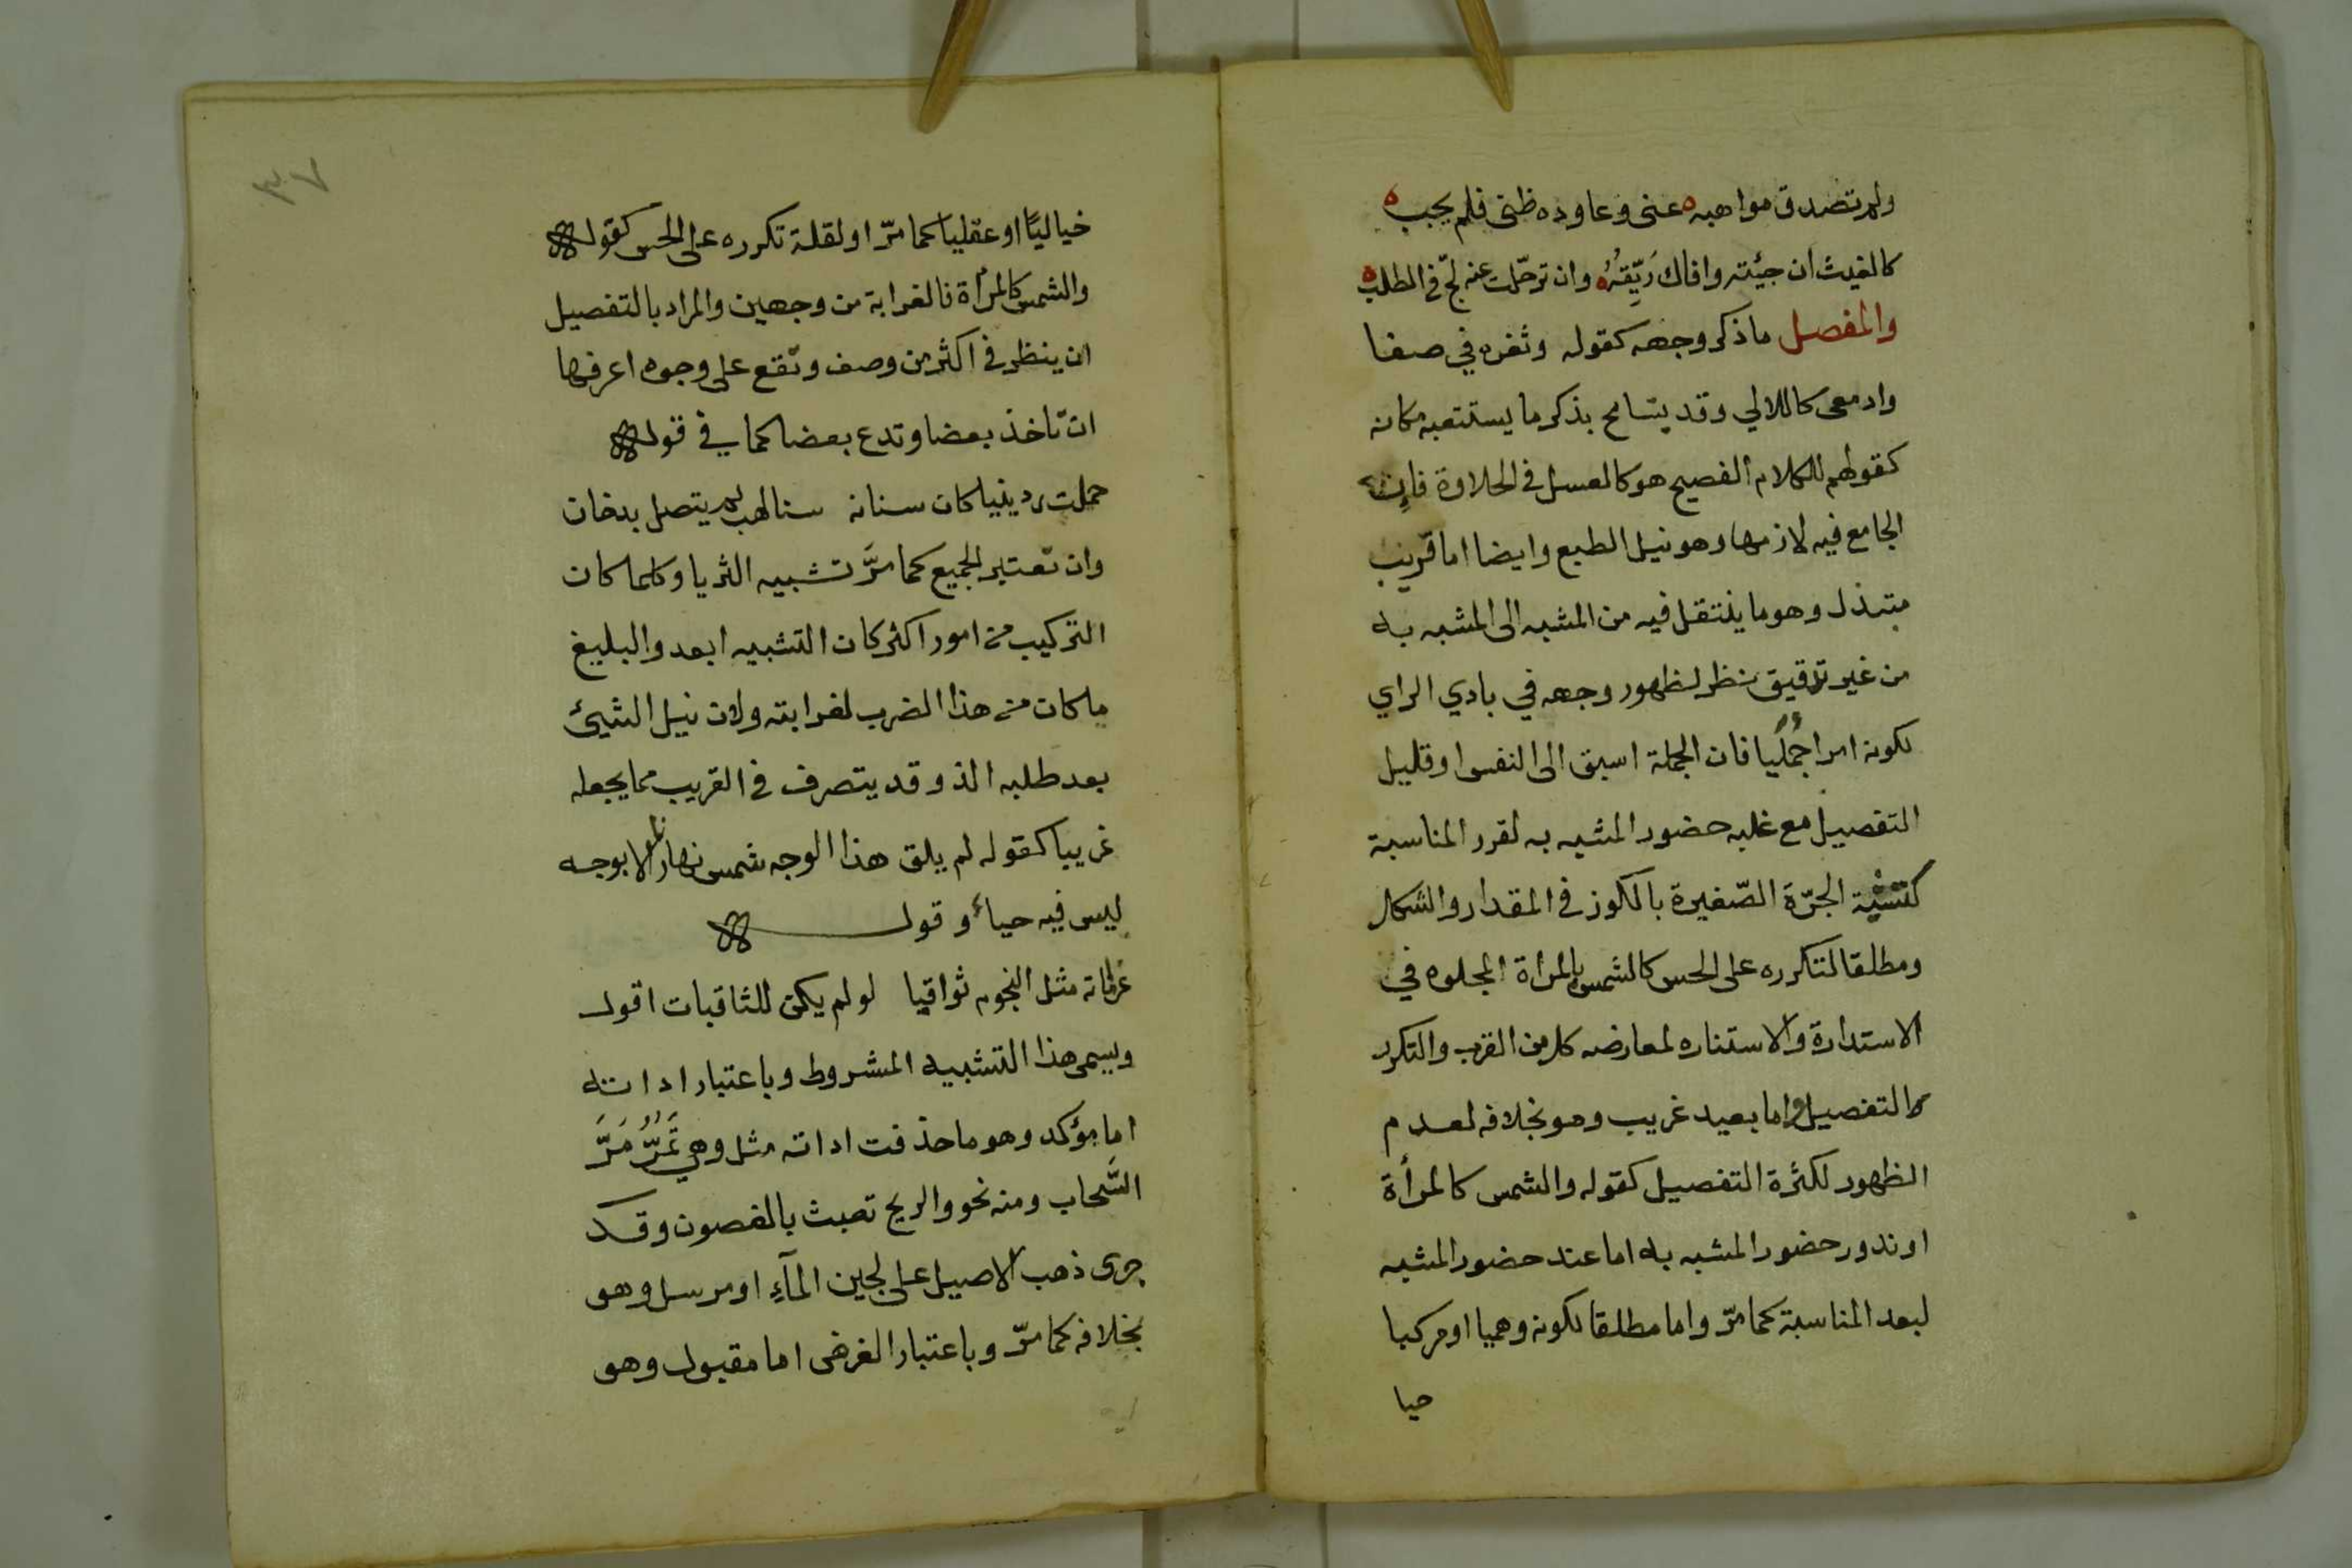 ولم تصدق مواهبه عنى وعاوده ظنى فلم يجب
كالغيث ان جئته وافاك رَيِّقُهُ وان ترحّلت عنه لجّ في الطلب
والمفصل ما ذكر وجهه كقوله وثغره في صفا
وادمعى كاللالي وقد يتسامح بذكر ما يستتبعه مكانه
كقولهم للكلام الفصيح هو كالعسل في الحلاوة فان
الجامع فيه لازمها وهو نيل الطبع وايضا اما قريب
مبتذل وهو ما ينتقل فيه من المشبه الى المشبه به
من غير تدقيق نظر لظهور وجهه في بادي الراي
لكونه امرا جُمليا فان الجملة اسبق الى النفس او قليل
التفصيل مع غلبه حضور المشبه به لقرر المناسبة
كتشبية الجرّة الصّغيرة بالكوز في المقدار والشكل
ومطلقا لتكرره على الحس كالشمس بالمراة المجلوه في
الاستدارة والاستناره لمعارضه كل من القرب والتكرر
التفصيل واما بعيد غريب وهو بخلافه لعدم
الظهور لكثرة التفصيل كقوله والشمس كالمرأة
او ندور حضور المشبه به اما عند حضور المشبه
لبعد المناسبة كما مرّ واما مطلقا لكونه وهميا او مركبا
حيا
٣٧
خياليًا او عقليا كما مرّ او لقلة تكرره على الحس كقوله
والشمس كالمرأة فالغرابة من وجهين والمراد بالتفصيل
ان ينظر في اكثر من وصف وتقع على وجوه اعرفها
ان تاخذ بعضا وتدع بعضا كما في قوله
حملت ردينيا كان سنانه سنا لهب لم يتصل بدخان
وان تعتبر الجميع كما مرَّ تشبيه الثريا وكلما كان
التركيب من امور اكثر كان التشبيه ابعد والبليغ
ما كان من هذا الضرب لغرابته ولان نيل الشيئ
بعد طلبه الذ وقد يتصرف في القريب مما يجعله
غريبا كقوله لم يلق هذا الوجه شمس نهارنا الا بوجه
ليس فيه حياء وقوله
عزماته مثل النجوم ثواقبا لو لم يكن للثاقبات افول
ويسمى هذا التشبيه المشروط وباعتبار اداته
اما مؤكد وهو ما حذفت اداته مثل وهي تَمُرُّ مَرَّ
السَّحاب ومنه نحو والريح تعبث بالغصون وقد
جرى ذهب الاصيل على لجين المآءِ او مرسل وهو
بخلافه كما مرّ وباعتبار الغرض اما مقبول وهو